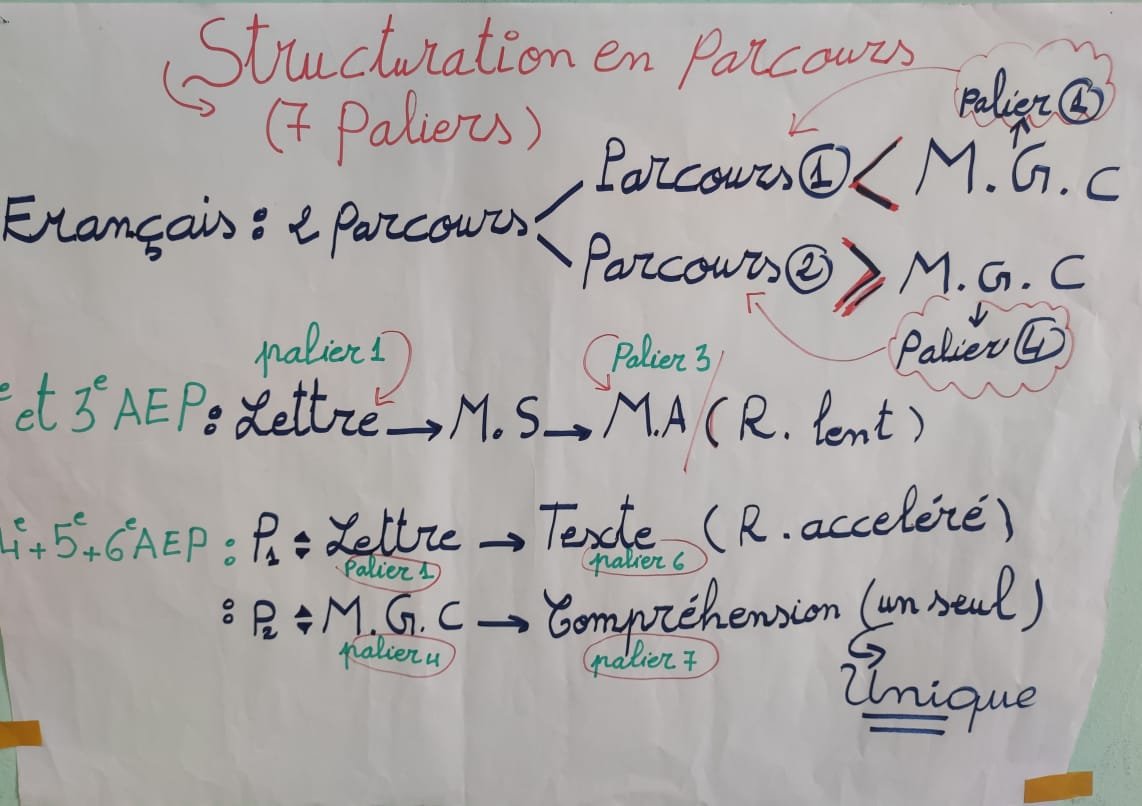 Structuration en Parcours
(7 Paliers)
Palier ④
Français : 2 Parcours
Parcours ① < M.G.C
Parcours ② ⩾ M.G.C
Palier ④
palier 1
Palier 3
e et 3e AEP : Lettre → M.S → M.A (R. lent)
4e + 5e + 6e AEP : P1 : Lettre → Texte (R. acceléré)
Palier 1
palier 6
: P2 : M.G.C → Compréhension (un seul)
palier 4
palier 7
Unique